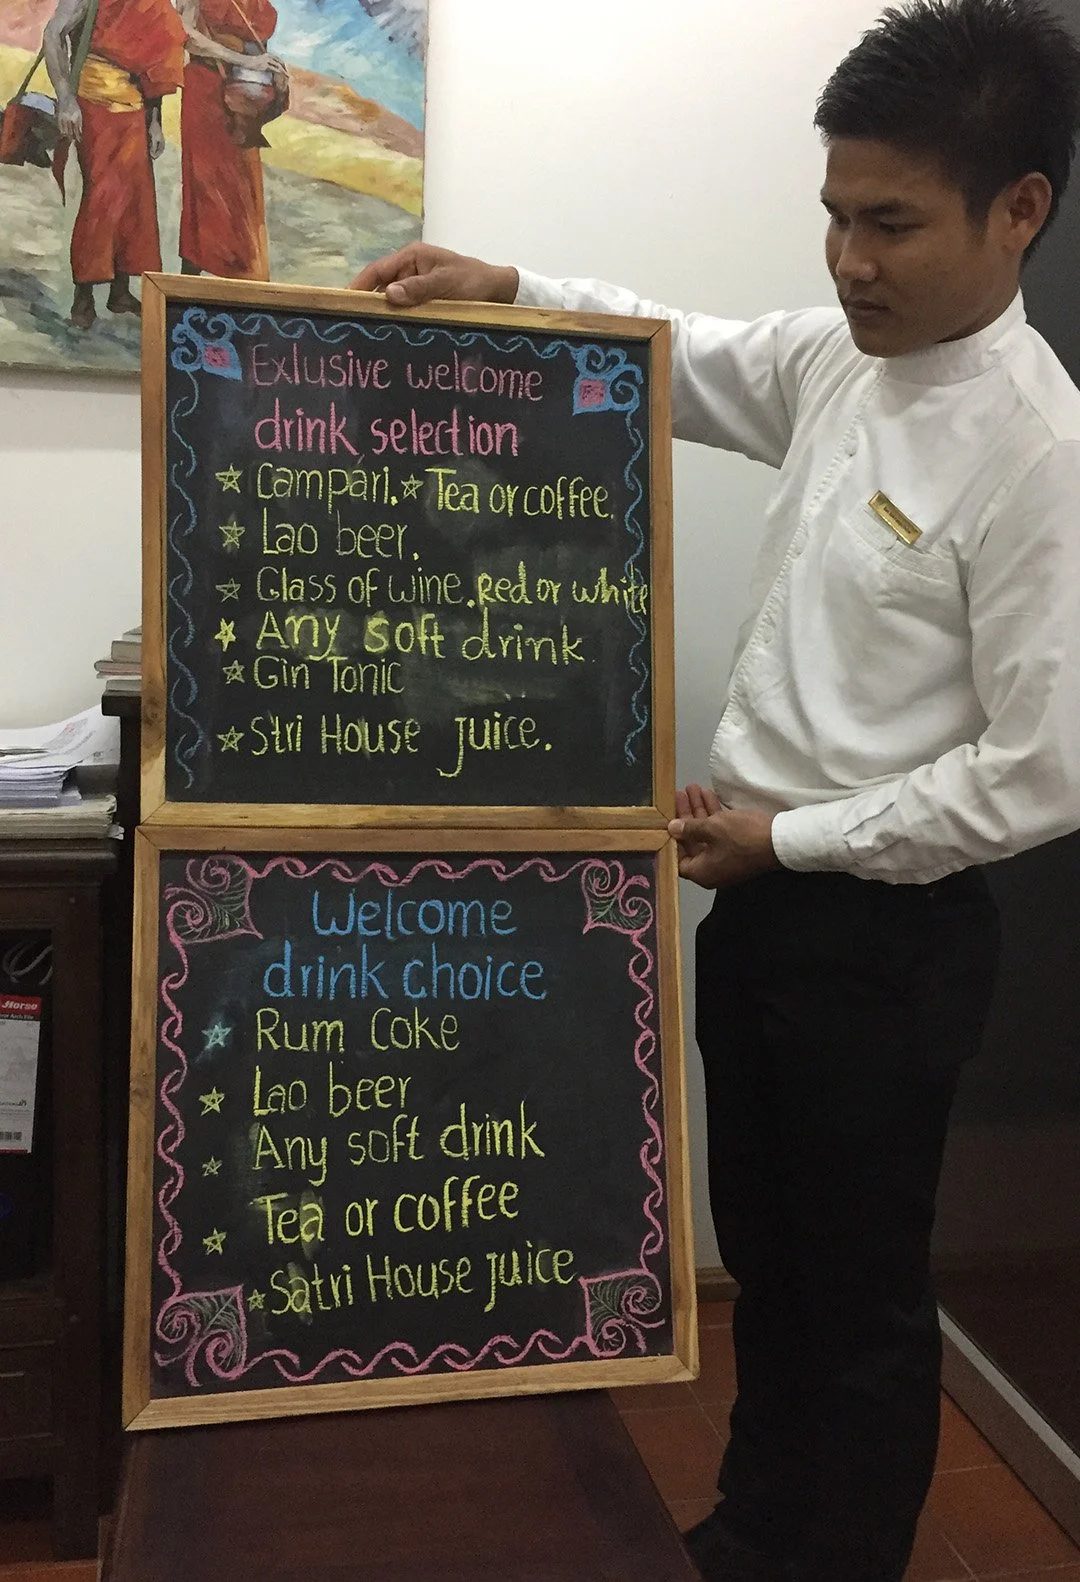 Exlusive welcome
drink selection
Campari. Tea or coffee.
Lao beer.
Glass of wine. Red or white
Any soft drink.
Gin Tonic
Stri House juice.
Welcome
drink choice
Rum Coke
Lao beer
Any soft drink
Tea or coffee
Satri House juice
Horse